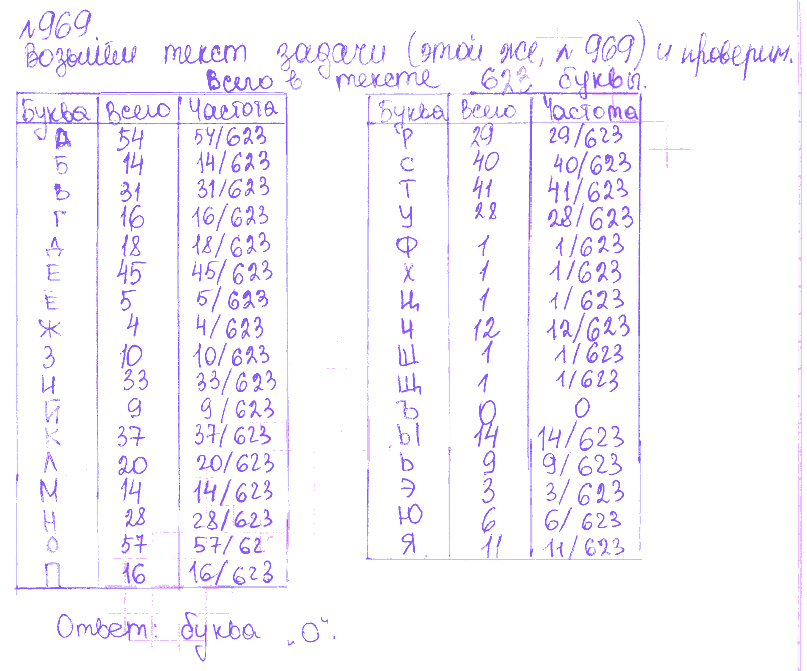 №969.
Возьмём текст задачи (этой же, №969) и проверим.
Всего в тексте 623 буквы.
Буква Всего Частота
А 54 54/623
Б 14 14/623
В 31 31/623
Г 16 16/623
Д 18 18/623
Е 45 45/623
Ё 5 5/623
Ж 4 4/623
З 10 10/623
И 33 33/623
Й 9 9/623
К 37 37/623
Л 20 20/623
М 14 14/623
Н 28 28/623
О 57 57/62
П 16 16/623
Буква Всего Частота
Р 29 29/623
С 40 40/623
Т 41 41/623
У 28 28/623
Ф 1 1/623
Х 1 1/623
Ц 1 1/623
Ч 12 12/623
Ш 1 1/623
Щ 1 1/623
Ъ 0 0
Ы 14 14/623
Ь 9 9/623
Э 3 3/623
Ю 6 6/623
Я 11 11/623
Ответ: буква „О“.